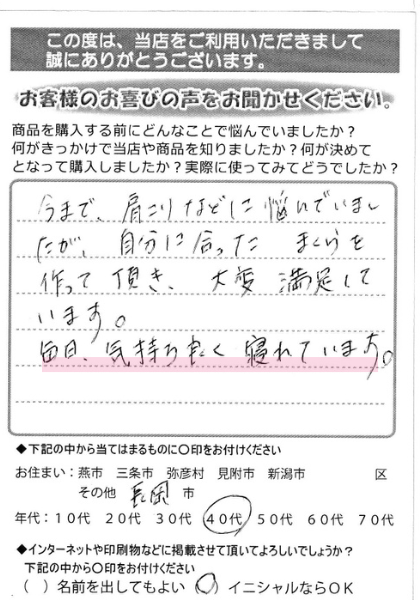 この度は、当店をご利用いただきまして
誠にありがとうございます。
お客様のお喜びの声をお聞かせください。
商品を購入する前にどんなことで悩んでいましたか？
何がきっかけで当店や商品を知りましたか？何が決めて
となって購入しましたか？実際に使ってみてどうでしたか？
今まで、肩こりなどに悩んでいまし
たが、自分に合った まくらを
作って頂き、大変 満足して
います。
毎日、気持ち良く 寝れています。
◆下記の中から当てはまるものに〇印をお付けください
お住まい：燕市 三条市 弥彦村 見附市 新潟市 区
その他 長岡 市
年代：10代 20代 30代 40代 50代 60代 70代
◆インターネットや印刷物などに掲載させて頂いてよろしいでしょうか？
下記の中から〇印をお付けください
（ ）名前を出してもよい （〇）イニシャルならOK